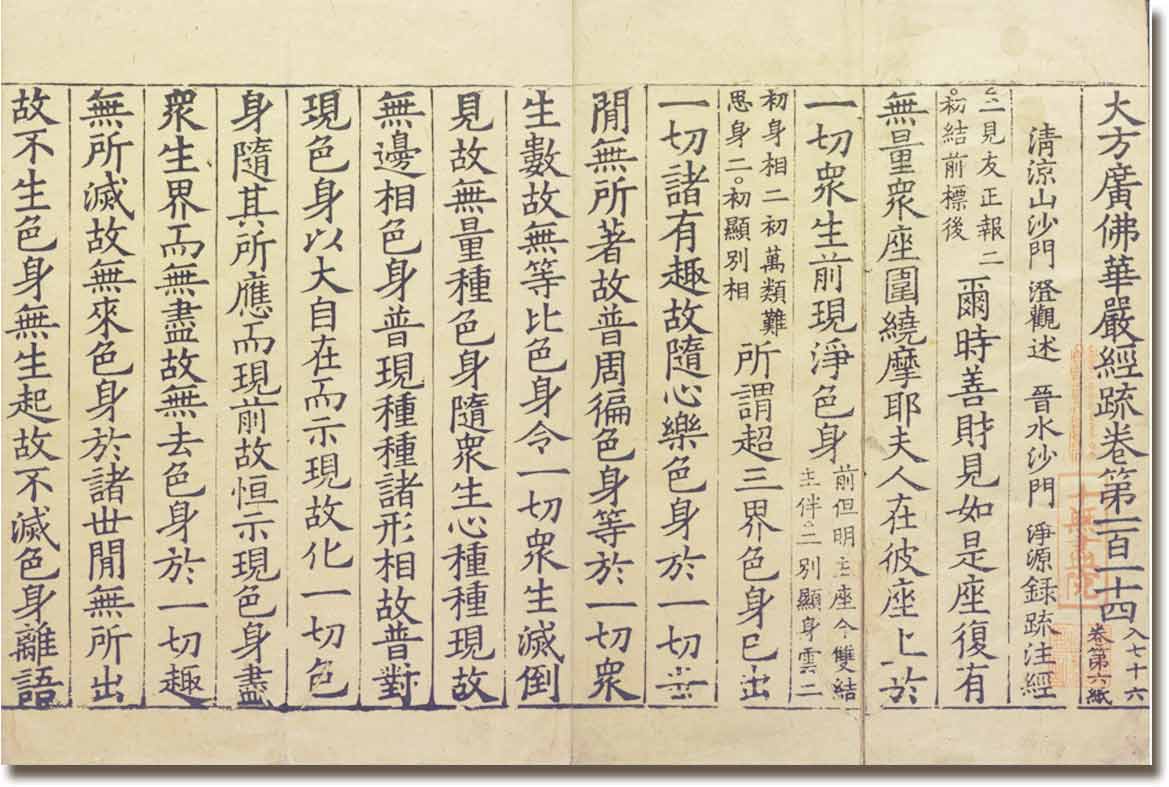 大方廣佛華嚴經疏卷第一百一十四 入七十六卷第六紙
清涼山沙門 澄觀述 晉水沙門 淨源錄疏注經
二見友正報二
初結前標後
爾時善財見如是座復有
無量眾座圍繞摩耶夫人在彼座上於
一切眾生前現淨色身
前但明主座今雙結
主伴二別顯身雲二
初身相二初萬類難
思身二初顯別相
所謂超三界色身已出
一切諸有趣故隨心樂色身於一切世
間無所著故普周徧色身等於一切眾
生數故無等比色身令一切眾生滅倒
見故無量種色身隨眾生心種種現故
無邊相色身普現種種諸形相故普對
現色身以大自在而示現故化一切色
身隨其所應而現前故恒示現色身盡
眾生界而無盡故無去色身於一切趣
無所滅故無來色身於諸世間無所出
故不生色身無生起故不滅色身離語